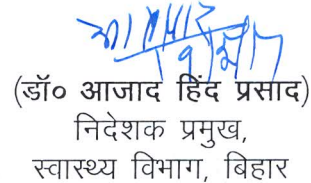 (डॉ० आजाद हिंद प्रसाद)
निदेशक प्रमुख,
स्वास्थ्य विभाग, बिहार